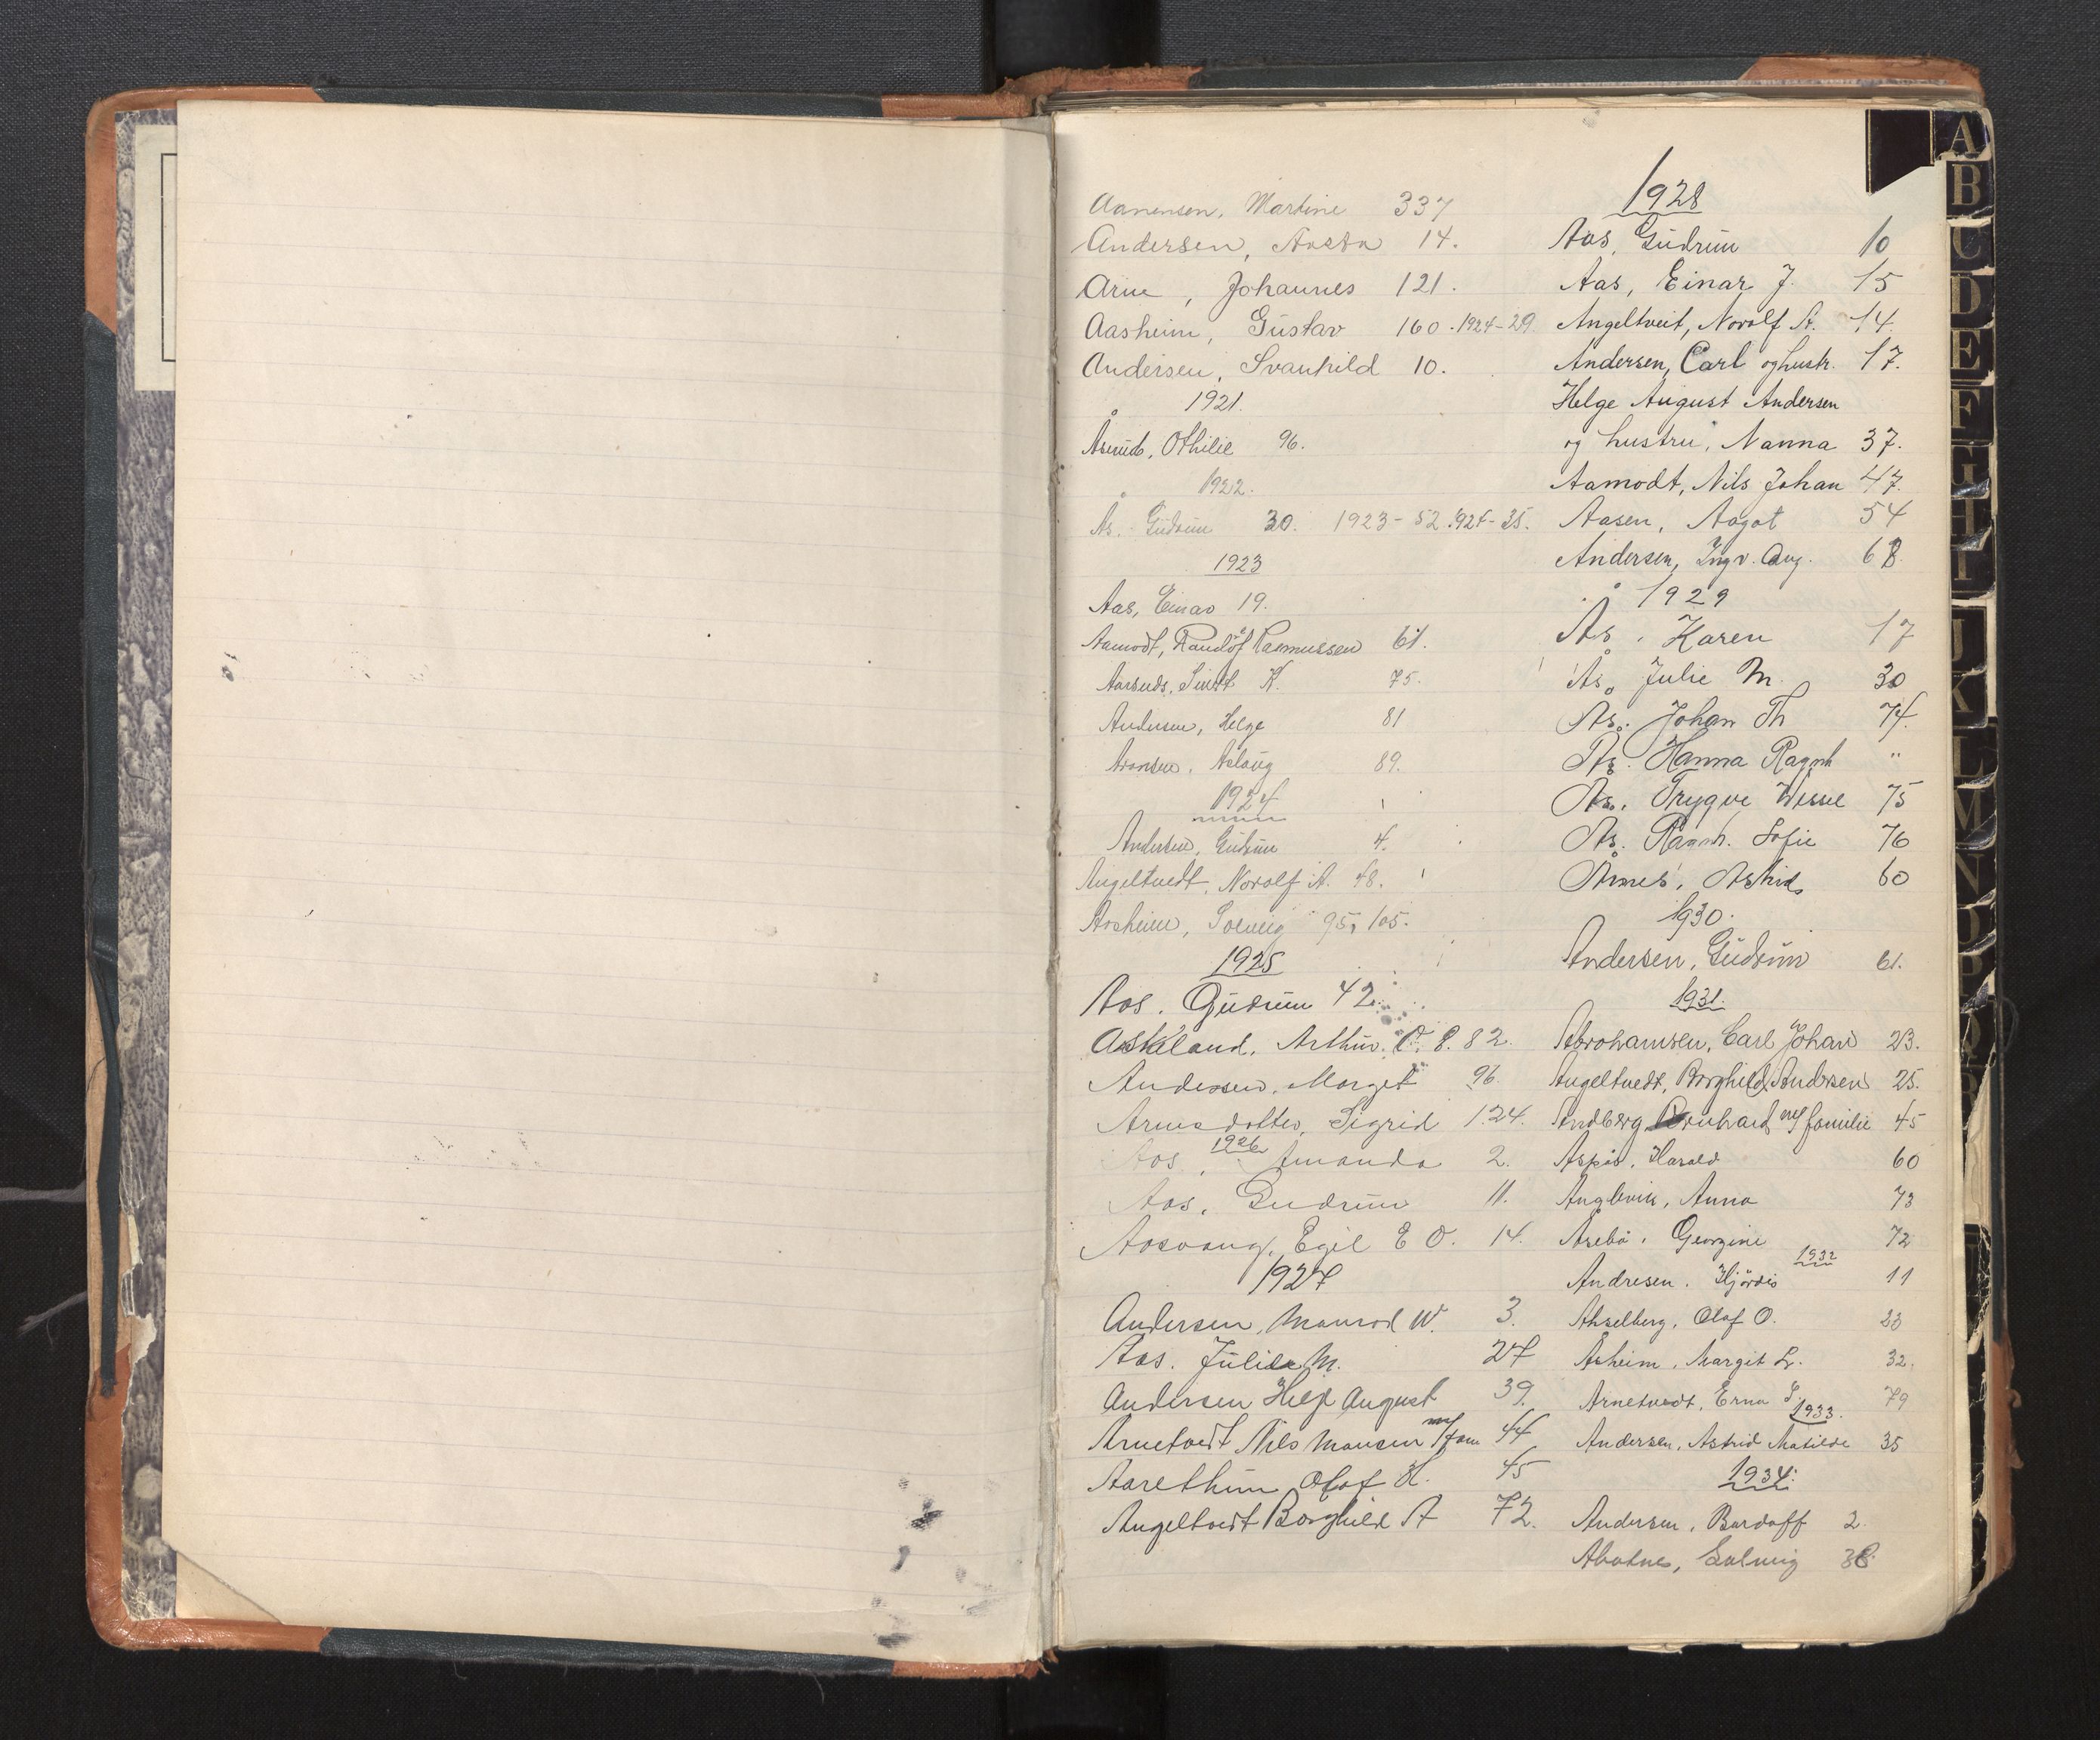 Aanensen, Martine 337
Andersen, Aasta 14.
Arne, Johannes 121.
Aasheim, Gustav 160. 1924-29
Andersen, Svanhild 10.
1921.
Othilie 96.
1922.
Ås. Gudrun 30. 1923-52. 1924-35.
1923
Aas, Einar 19.
Aamodt, Randolf Rasmussen 61.
K. 75.
Andersen, Helge 81
Aronsen, Aslaug 89.
1924
Andersen, Gudrun 4.
Angeltvedt, Norolf A. 48.
Aasheim, Solveig 95, 105.
1925
Aas. Gudrun 42.
Askeland. Arthur. O. P. 82.
Andersen, Marget 96
Arnesdotter, Sigrid 124.
1926
Aas, Amanda 2.
Aas, Gudrun 11.
Aasvang, Egil E O. 14.
1927
Andersen, Monrad W. 3.
Aas. Julie M. 27
Andersen Helge August 39.
Arnetvedt Nils Monsen m/fam 44
Aarethun Olaf H. 45
Angeltvedt Borghild A 72.
1928
Aas, Gudrun 10
Aas, Einar J. 15
Angeltveit, Norolf A. 14.
Andersen, Carl og hustr. 17.
Helge August Andersen
og hustru, Nanna 37.
Aamodt, Nils Johan 47.
Aasen, Aagot 54
Andersen, Ingv. Aug. 68.
1929
Ås, Karen 17
Ås, Julie M. 30
Ås. Johan Th 74.
Ås. Hanna Ragnh "
Ås. Trygve Wessel 75
Ås. Ragnh. Sofie 76
Årnes, Astrid 60
1930.
Andersen, Gudrun 61.
1931.
Abrahamsen, Carl Johan 23.
Angeltvedt, Borghild Andersen 25.
Andberg, Bernhard m/ familie 45
Harald 60
Anna 73
Årebø, Georgine 72
1932
Andresen. Hjørdis 11
Ahselberg, Olaf O. 23
Åsheim, Margit L. 32.
Arnetvedt, Erna S. 79
1933.
Andersen, Astrid Matilde 35
1934.
Andersen, Bardoff 2.
Solveig 38.